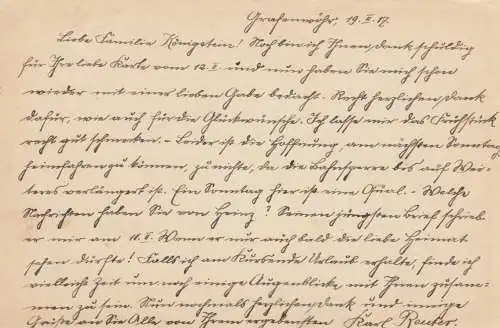 Grafenwöhr, 19.II.17.
Liebe Familie Königstein! Noch bin ich Ihnen Dank schuldig
für Ihre liebe Karte vom 12.II. und nun haben Sie mich schon
wieder mit einer lieben Gabe bedacht. Recht herzlichen Dank
dafür, wie auch für die Glückwünsche. Ich lasse mir das Frühstück
recht gut schmecken. - Leider ist die Hoffnung, am nächsten Sonntag
heimfahren zu können, zu nichte, da die Bahnsperre bis auf Wei-
teres verlängert ist. Ein Sonntag hier ist eine Qual. - Welche
Nachrichten haben Sie von Heinz? Seinen jüngsten Brief schrieb
er mir am 11.II. Wenn er nur auch bald die liebe Heimat
sehen dürfte! Falls ich am Kursende Urlaub erhalte, finde ich
vielleicht Zeit um noch einige Augenblicke mit Ihnen zusam-
men zu sein. Nun nochmals herzlichen Dank und innige
Grüße an Sie Alle von Ihrem ergebensten Karl